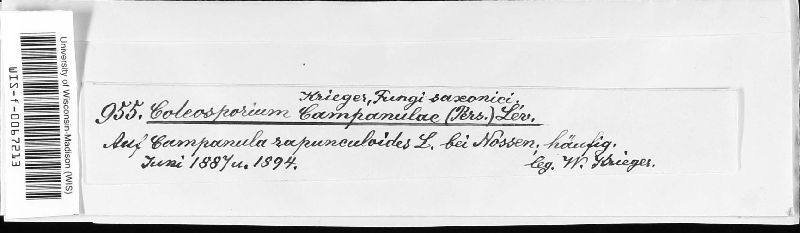 Krieger, Fungi saxonici.
955. Coleosporium Campanulae (Pers.) Lév.
Auf Campanula rapunculoides L. bei Nossen, häufig.
Juni 1887 u. 1894. leg. W. Krieger.
University of Wisconsin-Madison (WIS)
WIS-f-0067213